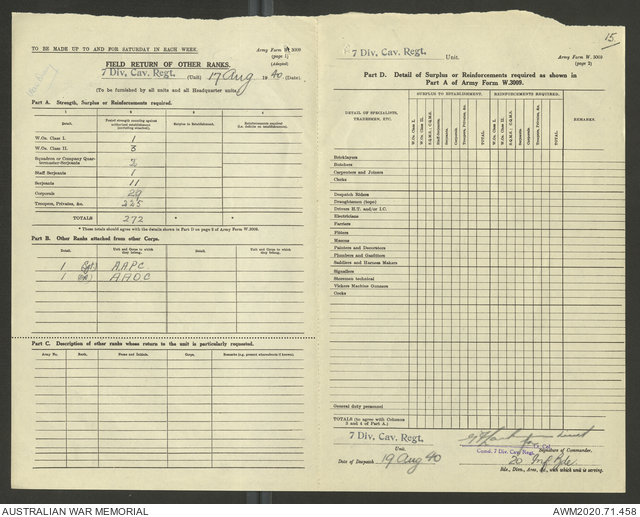 TO BE MADE UP TO AND FOR SATURDAY IN EACH WEEK.
Army Form W 3009
(page 1)
(Adapted)
FIELD RETURN OF OTHER RANKS.
7 Div. Cav. Regt. (Unit) 17 Aug 1940 (Date)
(To be furnished by all units and all Headquarter units)
Part A. Strength, Surplus or Reinforcements required.
1 2 3 4
Detail. Posted strength counting against authorised establishment (excluding attached). Surplus to Establishment. Reinforcements required (i.e. deficits on establishment).
W.Os. Class I. 1
W.Os. Class II. 3
Squadron or Company Quartermaster-Serjeants 2
Staff Serjeants 1
Serjeants 11
Corporals 29
Troopers, Privates, &c. 225
TOTALS 272 * *
* These totals should agree with the details shown in Part D on page 2 of Army Form W.3009.
Part B. Other Ranks attached from other Corps.
Detail. Unit and Corps to which they belong. Detail. Unit and Corps to which they belong.
1 (Sgt) A.A.P.C.
1 A.A.O.C
Part C. Description of other ranks whose return to the unit is particularly requested.
Army No. Rank. Name and Initials. Corps. Remarks (e.g. present whereabouts if known).
15
7 Div. Cav. Regt. Unit.
Army Form W. 3009
(page 2)
Part D. Detail of Surplus or Reinforcements required as shown in
Part A of Army Form W.3009.
DETAIL OF SPECIALISTS, TRADESMEN, ETC.
SURPLUS TO ESTABLISHMENT. REINFORCEMENTS REQUIRED. REMARKS
W.Os. Class I. W.Os. Class II. S.Q.M.S.; C.Q.M.S. Staff-Serjeants. Serjeants. Corporals. Troopers, Privates, &c. TOTAL. W.Os. Class I. W.Os. Class II. S.Q.M.S.; C.Q.M.S. Staff-Serjeants. Serjeants. Corporals. Troopers, Privates, &c. TOTAL.
Bricklayers
Butchers
Carpenters and Joiners
Clerks
Despatch Riders
Draughtsmen (topo)
Drivers H.T. and/or I.C.
Electricians
Farriers
Fitters
Masons
Painters and Decorators
Plumbers and Gasfitters
Saddlers and Harness Makers
Signallers
Storemen technical
Vickers Machine Gunners
Cooks
General duty personnel
TOTALS (to agree with Columns 3 and 4 of Part A.)
7 Div. Cav. Regt.
Unit.
Lieut
for Lt.-Col.
Comd. 7 Div. Cav. Regt. Signature of Commander.
Date of Despatch 19 Aug 40
20 Inf Bde.
Bde., Divn., Area, &c., with which unit is serving.
AUSTRALIAN WAR MEMORIAL
AWM2020.71.458